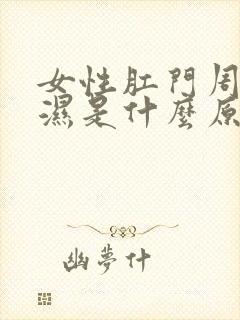 女性肛門周
濕是什麼原
幽夢什